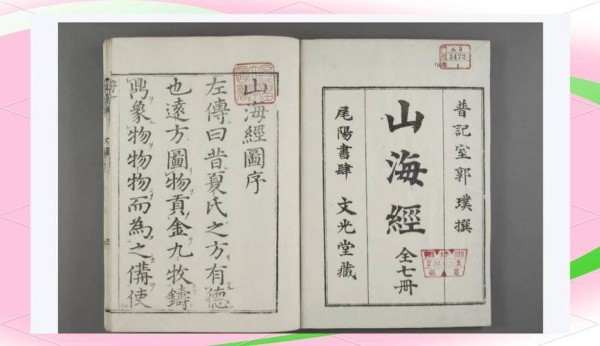 晋記室郭璞撰
山海經 全七冊
尾陽書肆 文光堂藏
3473
山海經圖序
左傳曰昔夏氏之方有德
也遠方圖物貢金九牧鑄
鼎象物物物而為之備使